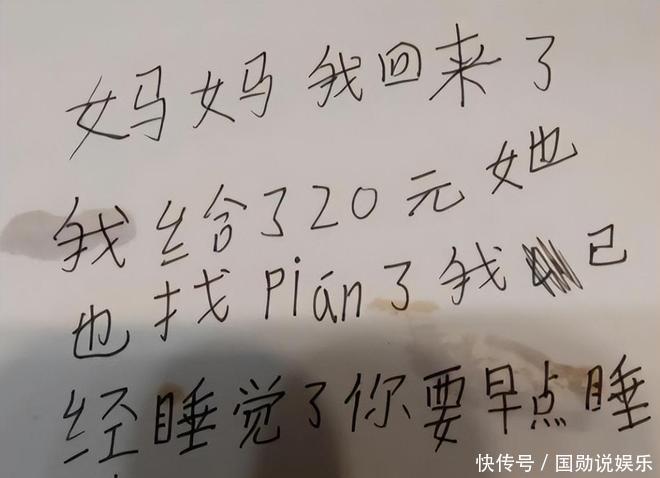 妈妈我回来了
我给了20元她
也找pián了我己
经睡觉了你要早点睡
快传号/国勋说娱乐